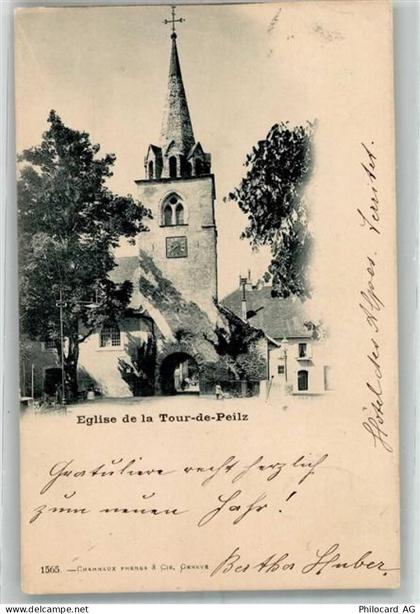 Eglise de la Tour-de-Peilz
Gratulire recht herzlich
zum neuen Jahr!
Bertha Huber
Hôtel des Alpes. Territet.
1565. — CHARNAUX FRÈRES & CIE, GENÈVE
© Philocard AG
Philocard.ch